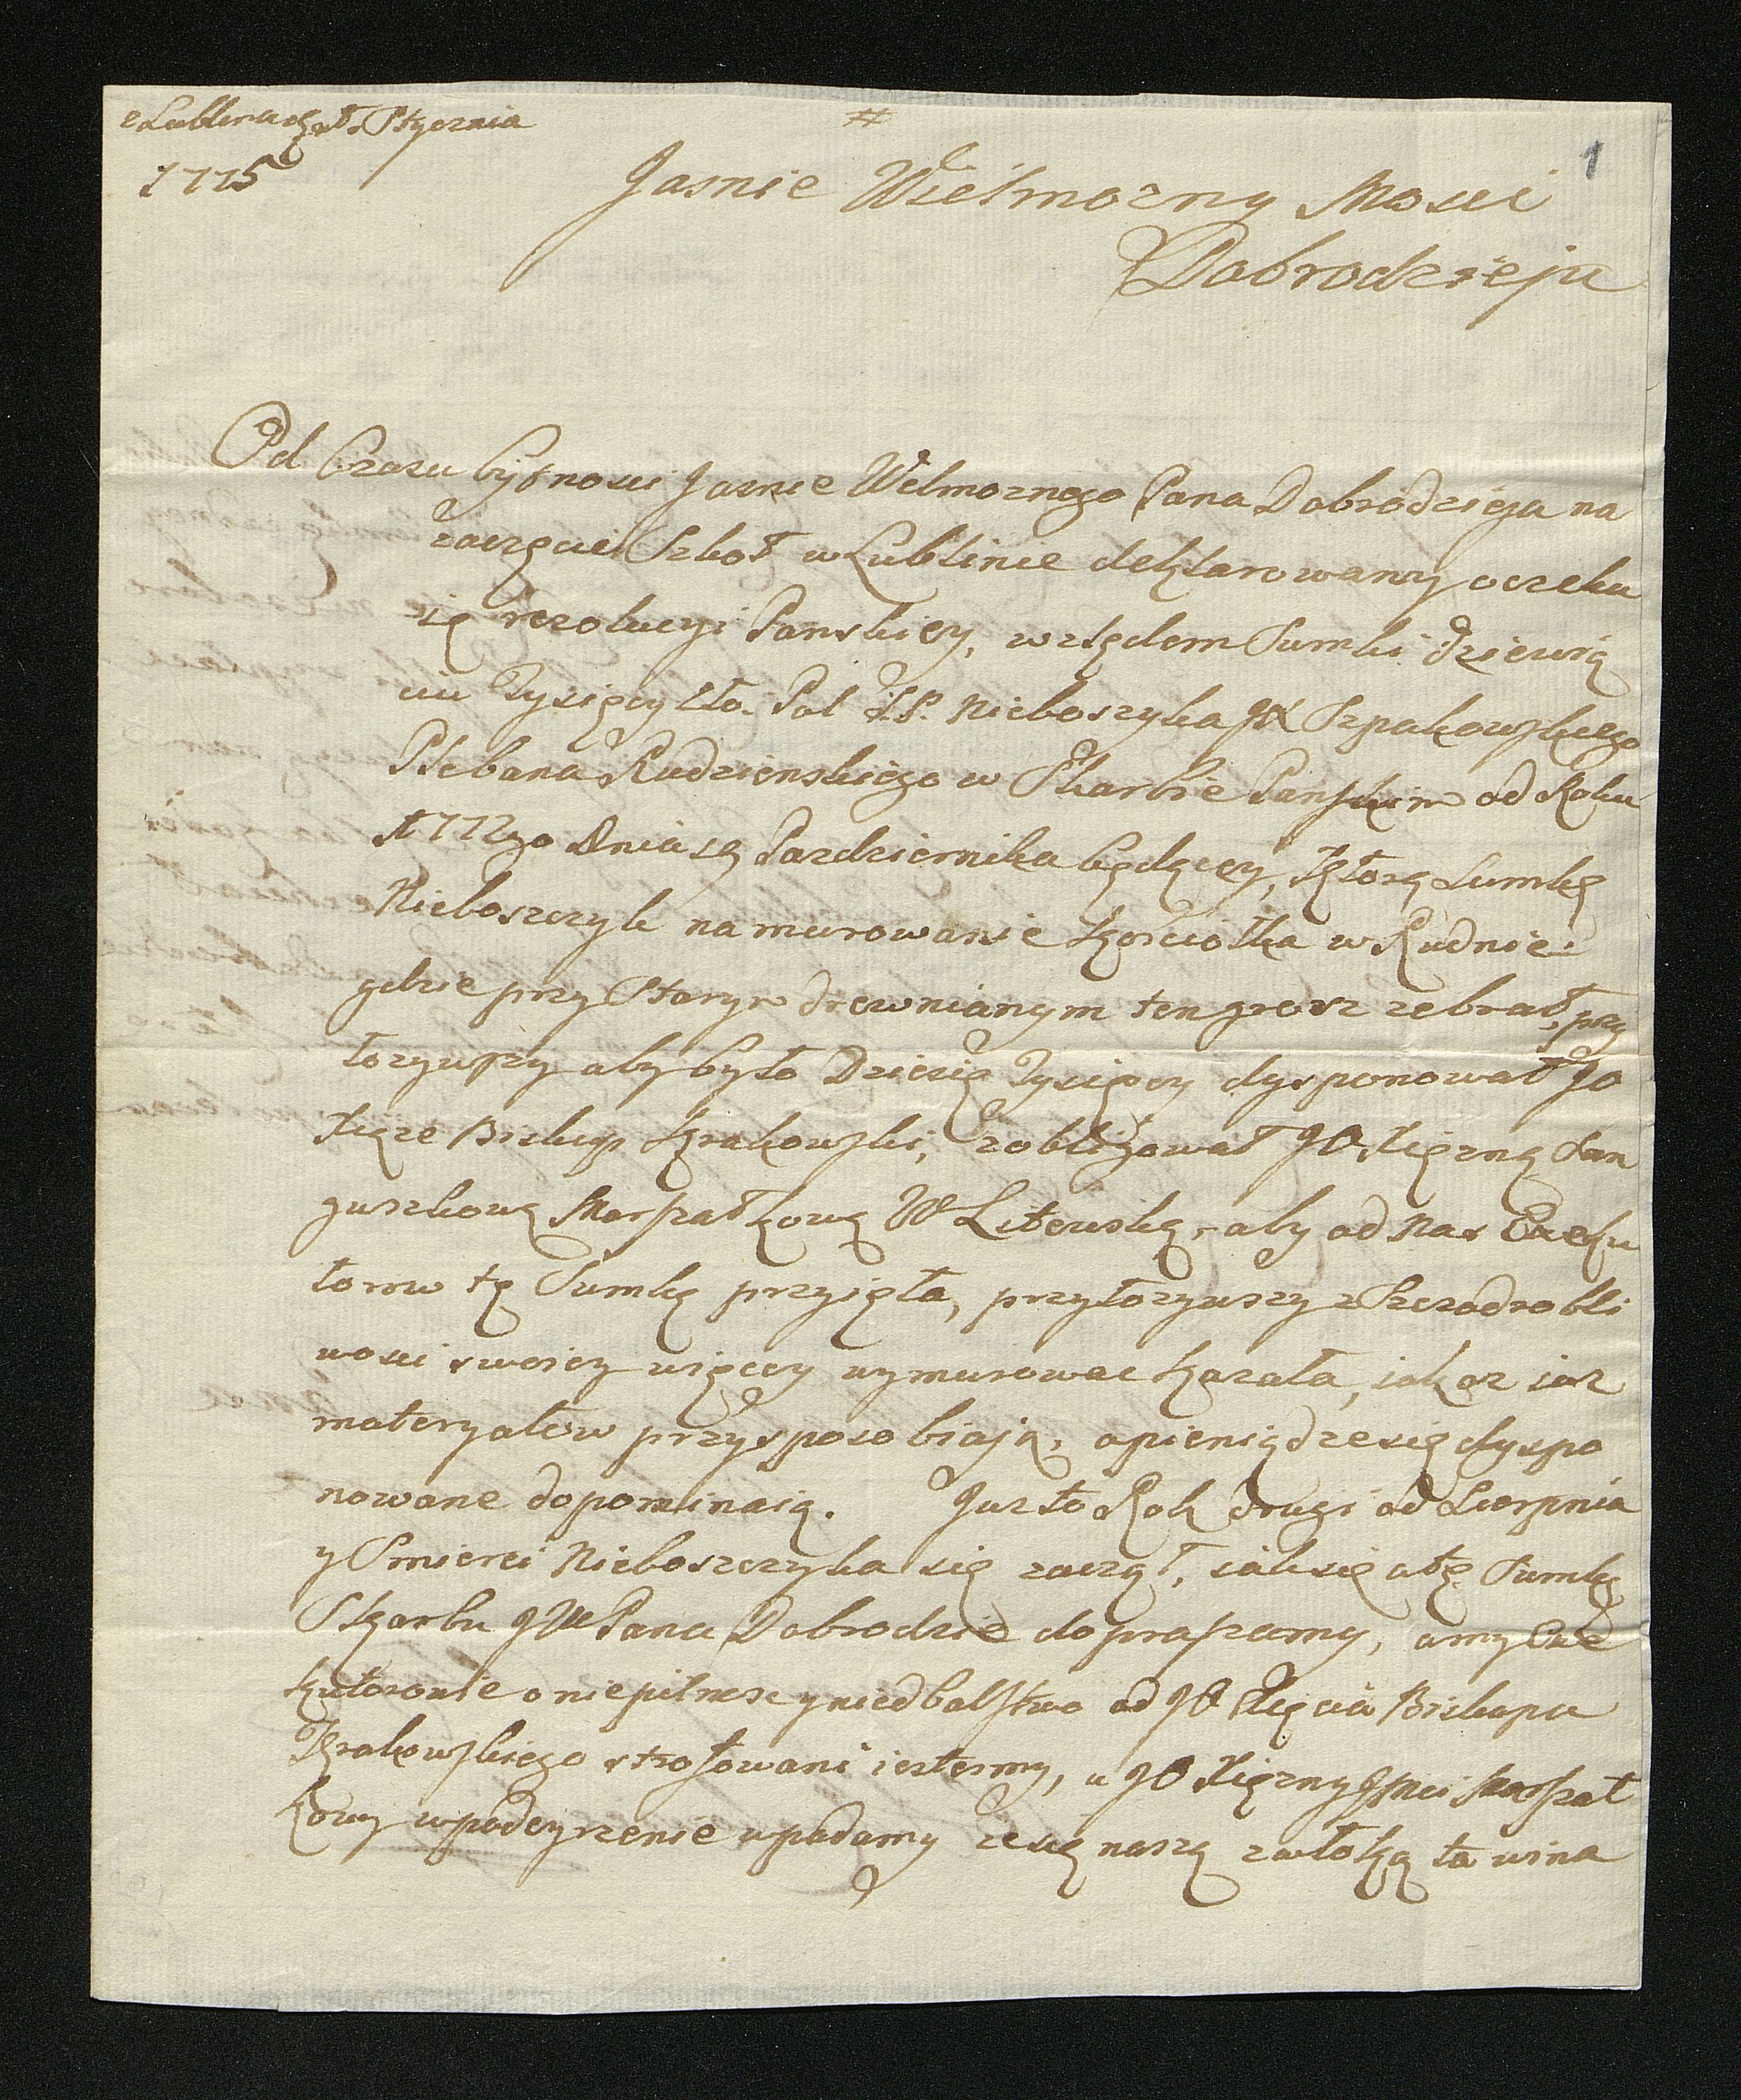 z Lublina Stycznia
1775
#
1
Jasnie Wielmozny Mosci
Dobrodzieju
Od Czasu bytnosci Jasnie Wielmoznego Pana Dobrodzieja na
zaczęcie Szkoł w Lublinie deklarowany oczeku
ię rezolucyi Panskiey, wzlędem Sumki dziewią
ciu Tysięcy Zło. Pol Ś.P. Nieboszyka JX Szpakowskiego
Plebana Rudzienskiego w Skarbie Panskim od Roku
1772go Dnia Pazdziernika będącey, Którą Sumkę
Nieboszczyk na murowanie Kosciołka w Rudnie
gdzie przy Starym drewnianym ten grosz zebrał, przy
łozywszy aby było Dziesię Tysięcy dysponował JO
Xiąze Biskup Krakowski, zobligował JO. Xięznę San
guszkową Marszałkową W Litewską, aby od nas Exeku
torow tę Sumkę przyięła, przyłozywszy z Szczodrobli
wosci swoiey więcey wymurowac kazała, iakoz iuz
materyałow przysposobiają, a pieniądze się dyspo
nowane dopominaią. Juz to Rok drugi od Sierpnia
y Smierci Nieboszczyka się zaczął, iak się o tę Sumkę
Skarbu JW Pana Dobrodzie dopraszamy, a my Exe
kutorowie o niepilnosc y niedbalstwo od JO Xięcia Biskupa
Krakowskiego strofowani iestesmy, u JO Xięzny Jmci Marszał
kowy w podeyrzenie upadamy ze się naszą zwłoką ta wina